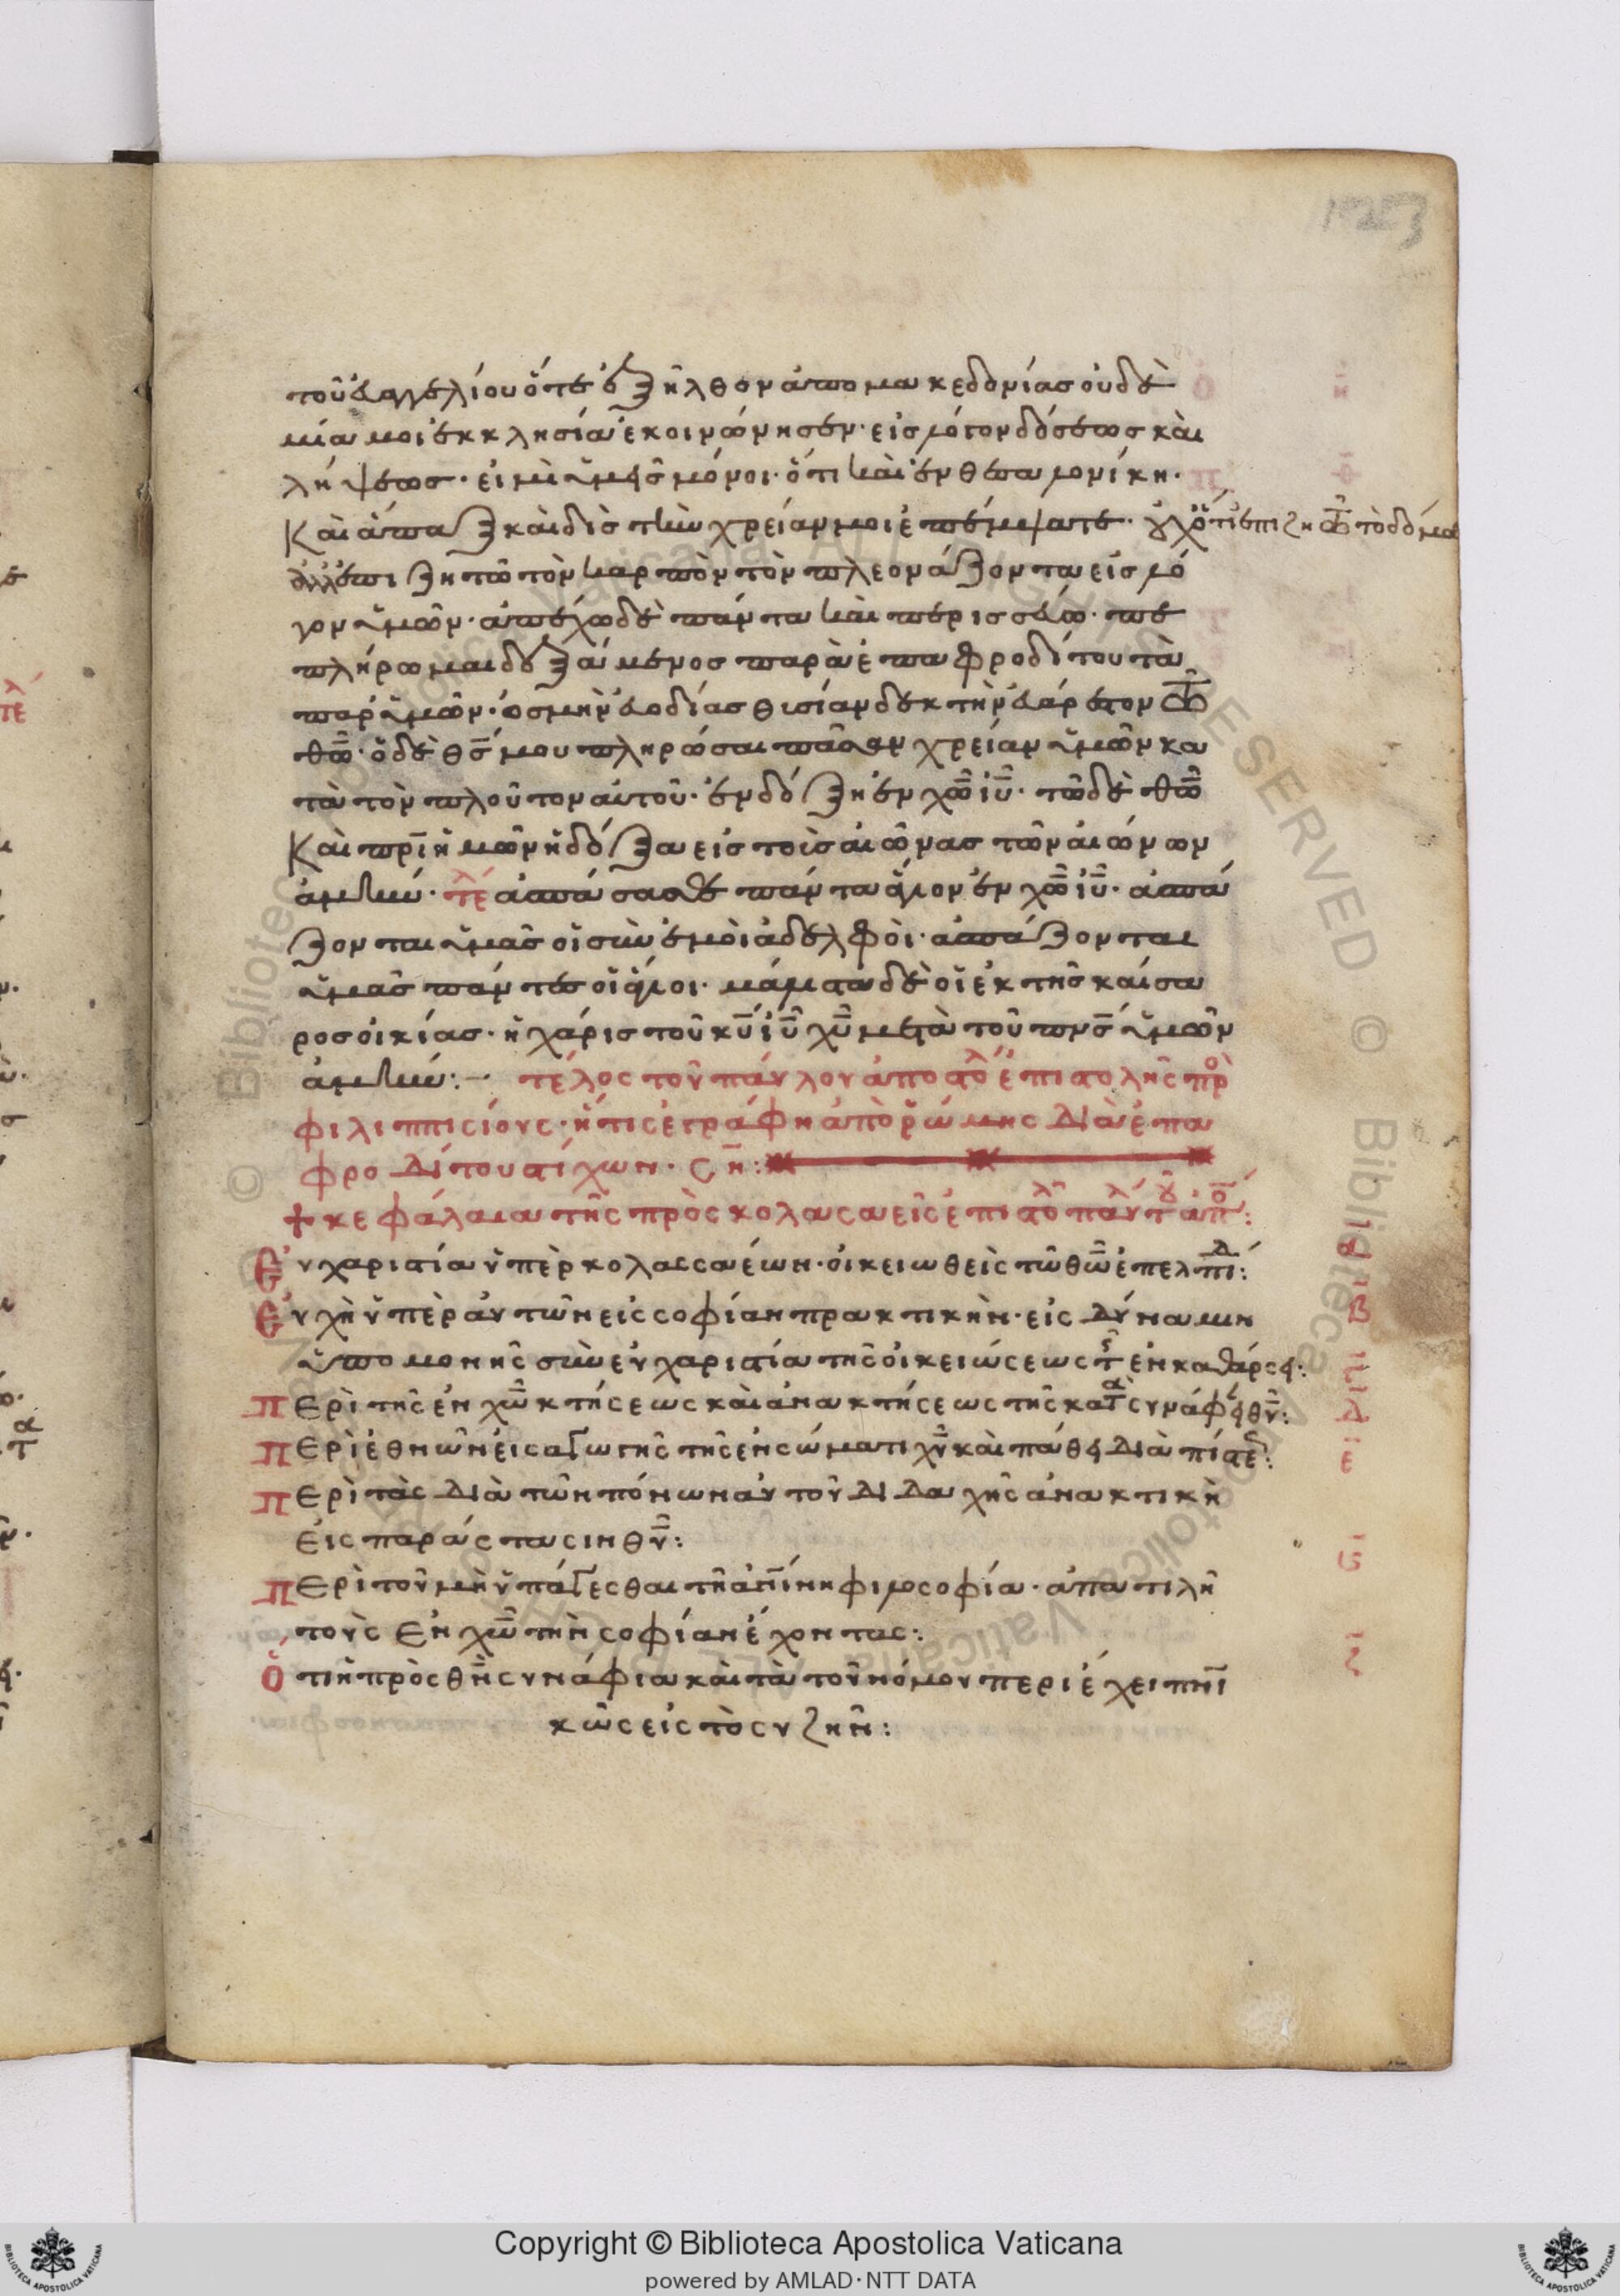 τοῦ εὐαγγελίου ὅτε ἐξῆλθον ἀπο μακεδονίας οὐδὲ
μία μοι ἐκκλησία ἐκοινώνησεν· εἰς λόγον δόσεως καὶ
λήψεως· εἰ μὴ ὑμεῖς μόνοι· ὅτι καὶ ἐν θεσαλονίκη·
Καὶ ἅπαξ καὶ δὶς τὴν χρείαν μοι ἐπέμψατε· οὐχ ὅτι ἐπιζητῶ τὸ δόμα
ἀλλ ἐπιζητῶ τὸν καρπὸν τὸν πλεονάζοντα εἰς λό
γον ὑμῶν· ἀπέχω δὲ πάντα καὶ περισσεύω· πε
πλήρωμαι δεξάμενος παρὰ ἐπαφροδίτου τὰ
παρ ὑμῶν· ὀσμὴν εὐωδίας θυσίαν δεκτὴν εὐάρεστον τῶ
θῶ· ὁ δὲ θς μου πληρώσαι πᾶσαν χρείαν ὑμῶν κα
τὰ τὸν πλοῦτον αὐτοῦ· ἐν δόξη ἐν χῶ ἰῦ· τῶ δὲ θῶ
Καὶ πρὶ ἡμῶν ἡ δόξα εἰς τοὺς αἰῶνας τῶν αἰώνων
ἀμήν· τέλ ἀσπάσασθε πάντα ἅγιον ἐν χῶ ἰῦ· ἀσπά
ζονται ὑμᾶς οἱ σὺν ἐμοὶ ἀδελφοὶ· ἀσπάζονται
ὑμᾶς πάντες οἱ ἅγιοι· μάλιστα δὲ οἱ ἐκ τῆς καίσα
ρος οἰκίας· ἡ χάρις τοῦ κῦ ἰῦ χῦ μετὰ τοῦ πνς ὑμῶν
ἀμήν:– τέλος τοῦ παύλου ἀποστολ ἐπιστολῆς πρὸ
φιλιππισίους· ἥτις ἐγράφη ἀπὸ ῥώμης διὰ ἐπα
φροδίτου στίχων· ςη:
+ κεφάλαια τῆς πρὸς κολασαεῖς ἐπιστολ παύλ τοῦ ἀπο:
Εὐχαριστία ὑπὲρ κολασσαέων· οἰκειωθεὶς τῶ θῶ ἐπ ελπίδ:
Εὐχὴ ὑπὲρ αὐτῶν εἰς σοφίαν πρακτικὴν· εἰς δύναμιν
ὑπομονῆς σὺν εὐχαριστία τῆς οἰκειώσεως τῆς ἐν καθάρσει:
Περὶ τῆς ἐν χῶ κτήσεως καὶ ἀνακτήσεως τῆς κατὰ συνάφει θῦ:
Περὶ ἐθνῶν εἰσαγωγῆς τῆς ἐν σώματι χῦ καὶ πάθει διὰ πίστε:
Περὶ τὰς διὰ τῶν πόνων αὐτοῦ διδαχῆς ἀνακτικὴ
εἰς παράστασιν θῦ:
Περὶ τοῦ μὴ ὑπάγεσθαι τῆ ἀπίνη φιλοσοφία· ἀπατιλῆ
τοὺς ἐν χῶ τὴν σοφίαν ἔχοντας:
Ὅτι ἡ πρὸς θν συνάφια καὶ τὰ τοῦ νόμου περιέχει πνι
κῶς εἰς τὸ συζῆν:
α
β
γ
δ
ε
ς
ζ
Copyright © Biblioteca Apostolica Vaticana
powered by AMLAD·NTT DATA